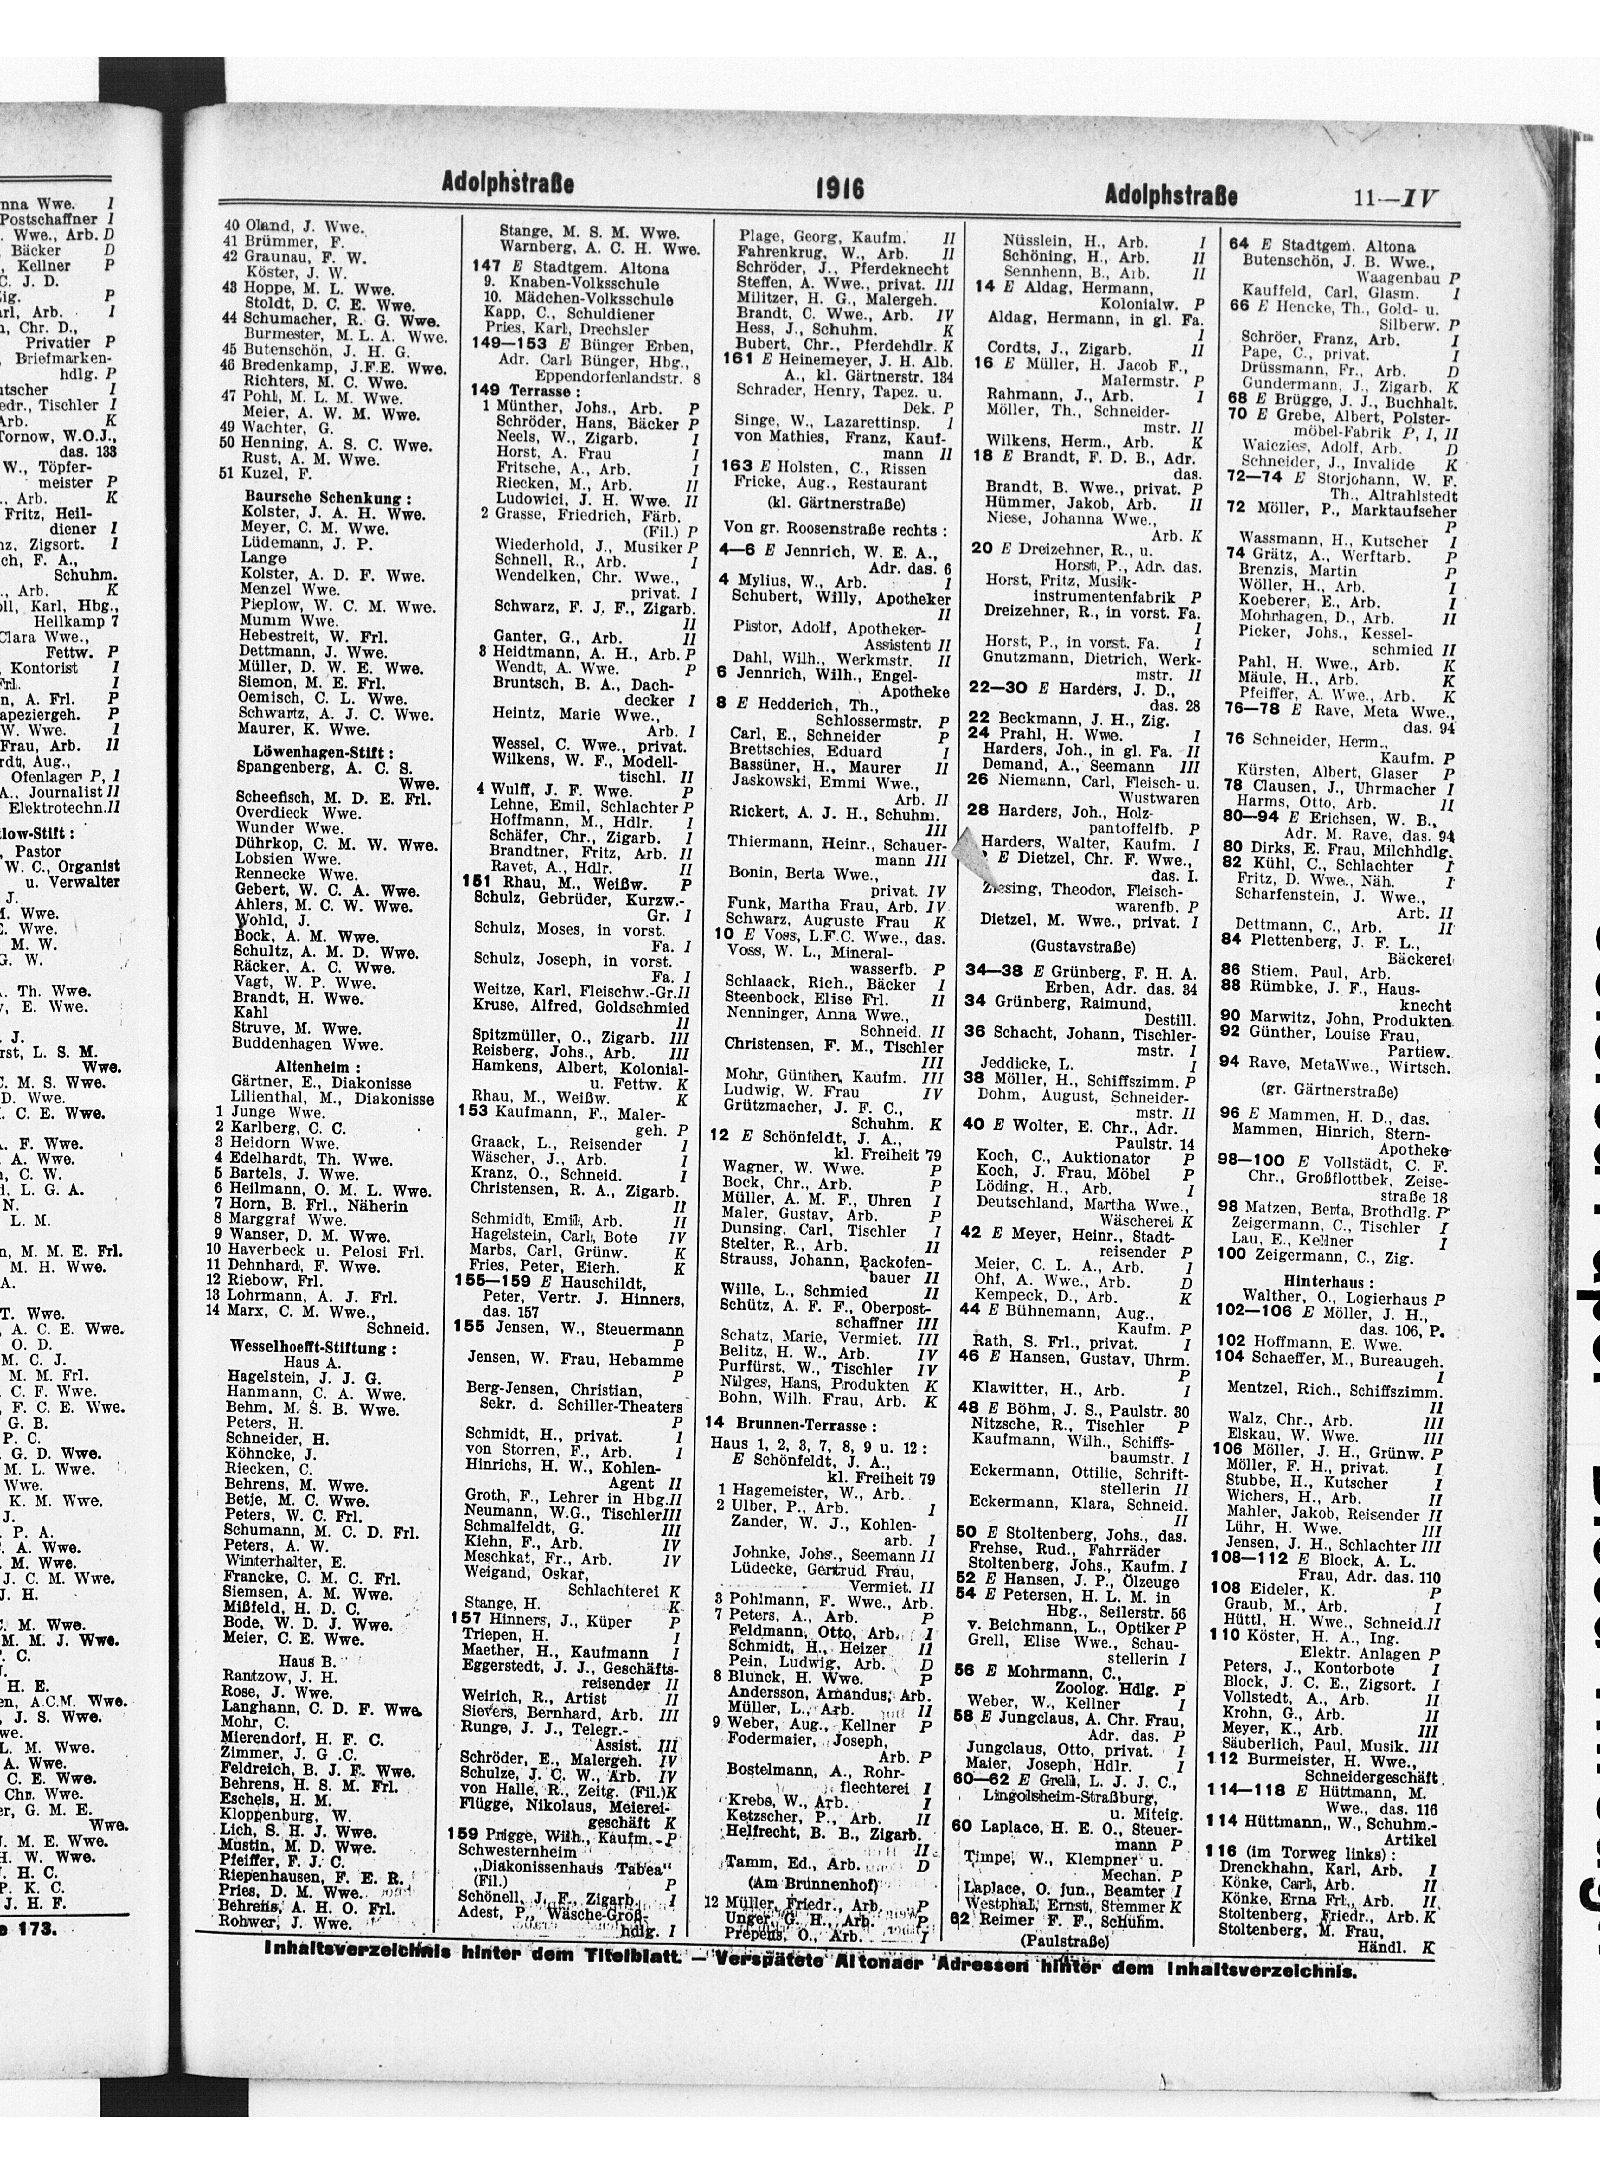 Adolphstraße
1916
Adolphstraße
11—IV
40 Oland, J. Wwe.
41 Brümmer, F.
42 Graunau, F. W.
Köster, J. W.
43 Hoppe, M. L. Wwe.
Stoldt, D. C. E. Wwe.
44 Schumacher, R. G. Wwe.
Burmester, M. L. A. Wwe.
45 Butenschön, J. H. G.
46 Bredenkamp, J.F.E. Wwe.
Richters, M. C. Wwe.
47 Pohl, M. L. M. Wwe.
Meier, A. W. M. Wwe.
49 Wachter, G.
50 Henning, A. S. C. Wwe.
Rust, A. M. Wwe.
51 Kuzel, F.
Baursche Schenkung:
Kolster, J. A. H. Wwe.
Meyer, C. M. Wwe.
Lüdemann, J. P.
Lange
Kolster, A. D. F. Wwe.
Menzel Wwe.
Pieplow, W. C. M. Wwe.
Mumm Wwe.
Hebestreit, W. Frl.
Dettmann, J. Wwe.
Müller, D. W. E. Wwe.
Siemon, M. E. Frl.
Oemisch, C. L. Wwe.
Schwartz, A. J. C. Wwe.
Maurer, K. Wwe.
Löwenhagen-Stift:
Spangenberg, A. C. S.
Wwe.
Scheefisch, M. D. E. Frl.
Overdieck Wwe.
Wunder Wwe.
Dührkop, C. M. W. Wwe.
Lobsien Wwe.
Rennecke Wwe.
Gebert, W. C. A. Wwe.
Ahlers, M. C. W. Wwe.
Wohld, J.
Bock, A. M. Wwe.
Schultz, A. M. D. Wwe.
Räcker, A. C. Wwe.
Vagt, W. P. Wwe.
Brandt, H. Wwe.
Kahl
Struve, M. Wwe.
Buddenhagen Wwe.
Altenheim:
Gärtner, E., Diakonisse
Lilienthal, M., Diakonisse
1 Junge Wwe.
2 Karlberg, C. C.
3 Heidorn Wwe.
4 Edelhardt, Th. Wwe.
5 Bartels, J. Wwe.
6 Heilmann, O. M. L. Wwe.
7 Horn, B. Frl., Näherin
8 Marggraf Wwe.
9 Wanser, D. M. Wwe.
10 Haverbeck u. Pelosi Frl.
11 Dehnhard, F. Wwe.
12 Riebow, Frl.
13 Lohrmann, A. J. Frl.
14 Marx, C. M. Wwe.,
Schneid.
Wesselhoefft-Stiftung:
Haus A.
Hagelstein, J. J. G.
Hanmann, C. A. Wwe.
Behm, M. S. B. Wwe.
Peters, H.
Schneider, H.
Köhncke, J.
Riecken, C.
Behrens, M. Wwe.
Betje, M. C. Wwe.
Peters, W. C. Frl.
Schumann, M. C. D. Frl.
Peters, A. W.
Winterhalter, E.
Francke, C. M. C. Frl.
Siemsen, A. M. Wwe.
Mißfeld, H. D. C.
Bode, W. D. J. Wwe.
Meier, C. E. Wwe.
Haus B.
Rantzow, J. H.
Rose, J. Wwe.
Langhann, C. D. F. Wwe.
Mohr, C.
Mierendorf, H. F. C.
Zimmer, J. G .C.
Feldreich, B. J. F. Wwe.
Behrens, H. S. M. Frl.
Eschels, H. M.
Kloppenburg, W.
Lich, S. H. J. Wwe.
Mustin, M. D. Wwe.
Pfeiffer, F. J. C.
Riepenhausen, F. E. R.
Pries, D. M. Wwe.
Behrens, A. H. O. Frl.
Rohwer, J. Wwe.
Stange, M. S. M. Wwe.
Warnberg, A. C. H. Wwe.
147 E Stadtgem. Altona
9. Knaben-Volksschule
10. Mädchen-Volksschule
Kapp, C., Schuldiener
Pries, Karl, Drechsler
149—153 E Bünger Erben,
Adr. Carl Bünger, Hbg.,
Eppendorferlandstr. 8
149 Terrasse:
1 Münther, Johs., Arb. P
Schröder, Hans, Bäcker P
Neels, W., Zigarb. I
Horst, A. Frau I
Fritsche, A., Arb. I
Riecken, M., Arb. II
Ludowici, J. H. Wwe. II
2 Grasse, Friedrich, Färb.
(Fil.) P
Wiederhold, J., Musiker P
Schnell, R., Arb. I
Wendelken, Chr. Wwe.,
privat. I
Schwarz, F. J. F., Zigarb.
II
Ganter, G., Arb. II
3 Heidtmann, A. H., Arb. P
Wendt, A. Wwe. P
Bruntsch, B. A., Dach-
decker I
Heintz, Marie Wwe.,
Arb. I
Wessel, C. Wwe., privat.
Wilkens, W. F., Modell-
tischl. II
4 Wulff, J. F. Wwe. P
Lehne, Emil, Schlachter P
Hoffmann, M., Hdlr. I
Schäfer, Chr., Zigarb. I
Brandtner, Fritz, Arb. II
Ravet, A., Hdlr. II
151 Rhau, M., Weißw. P
Schulz, Gebrüder, Kurzw.-
Gr. I
Schulz, Moses, in vorst.
Fa. I
Schulz, Joseph, in vorst.
Fa. I
Weitze, Karl, Fleischw.-Gr. II
Kruse, Alfred, Goldschmied
II
Spitzmüller, O., Zigarb. III
Reisberg, Johs., Arb. III
Hamkens, Albert, Kolonial-
u. Fettw. K
Rhau, M., Weißw. K
153 Kaufmann, F., Maler-
geh. P
Graack, L., Reisender I
Wäscher, J., Arb. I
Kranz, O., Schneid. I
Christensen, R. A., Zigarb.
II
Schmidt, Emil, Arb. II
Hagelstein, Carl, Bote IV
Marbs, Carl, Grünw. K
Fries, Peter, Eierh. K
155—159 E Hauschildt,
Peter, Vertr. J. Hinners,
das. 157
155 Jensen, W., Steuermann
P
Jensen, W. Frau, Hebamme
P
Berg-Jensen, Christian,
Sekr. d. Schiller-Theaters
P
Schmidt, H., privat. I
von Storren, F., Arb. I
Hinrichs, H. W., Kohlen-
Agent II
Groth, F., Lehrer in Hbg. II
Neumann, W.G., Tischler III
Schmalfeldt, G. III
Kiehn, F., Arb. IV
Meschkat, Fr., Arb. IV
Weigand, Oskar,
Schlachterei K
Stange, H. K
157 Hinners, J., Küper P
Triepen, H. I
Maether, H., Kaufmann I
Eggerstedt, J. J., Geschäfts-
reisender II
Weirich, R., Artist II
Sievers, Bernhard, Arb. III
Runge, J. J., Telegr.-
Assist. III
Schröder, E., Malergeh. IV
Schulze, J. C. W., Arb. IV
von Halle, R., Zeitg. (Fil.) K
Flügge, Nikolaus, Meierei-
geschäft K
159 Prigge, Wilh., Kaufm. P
Schwesternheim
„Diakonissenhaus Tabea"
(Fil.) P
Schönell, J. F., Zigarb. I
Adest, P., Wäsche-Groß-
hdlg. I
Plage, Georg, Kaufm. II
Fahrenkrug, W., Arb. II
Schröder, J., Pferdeknecht
Steffen, A. Wwe., privat. III
Militzer, H. G., Malergeh.
Brandt, C. Wwe., Arb. IV
Hess, J., Schuhm. K
Bubert, Chr., Pferdehdlr. K
161 E Heinemeyer, J. H. Alb.
A., kl. Gärtnerstr. 134
Schrader, Henry, Tapez. u.
Dek. P
Singe, W., Lazarettinsp. I
von Mathies, Franz, Kauf-
mann II
163 E Holsten, C., Rissen
Fricke, Aug., Restaurant
(kl. Gärtnerstraße)
Von gr. Roosenstraße rechts:
4—6 E Jennrich, W. E. A.,
Adr. das. 6
4 Mylius, W., Arb. I
Schubert, Willy, Apotheker
II
Pistor, Adolf, Apotheker-
Assistent II
Dahl, Wilh., Werkmstr. II
6 Jennrich, Wilh., Engel-
Apotheke
8 E Hedderich, Th.,
Schlossermstr. P
Carl, E., Schneider P
Brettschies, Eduard I
Bassüner, H., Maurer II
Jaskowski, Emmi Wwe.,
Arb. II
Rickert, A. J. H., Schuhm.
III
Thiermann, Heinr., Schauer-
mann III
Bonin, Berta Wwe.,
privat. IV
Funk, Martha Frau, Arb. IV
Schwarz, Auguste Frau K
10 E Voss, L.F.C. Wwe., das.
Voss, W. L., Mineral-
wasserfb. P
Schlaack, Rich., Bäcker I
Steenbock, Elise Frl. II
Nenninger, Anna Wwe.,
Schneid. II
Christensen, F. M., Tischler
III
Mohr, Günther, Kaufm. III
Ludwig, W. Frau IV
Grützmacher, J. F. C.,
Schuhm. K
12 E Schönfeldt, J. A.,
kl. Freiheit 79
Wagner, W. Wwe. P
Bock, Chr., Arb. P
Müller, A. M. F., Uhren I
Maler, Gustav, Arb. P
Dunsing, Carl, Tischler I
Stelter, R., Arb. II
Strauss, Johann, Backofen-
bauer II
Wille, L., Schmied II
Schütz, A. F. F., Oberpost-
schaffner III
Schatz, Marie, Vermiet. III
Belitz, H. W., Arb. IV
Purfürst, W., Tischler IV
Nilges, Hans, Produkten K
Bohn, Wilh. Frau, Arb. K
14 Brunnen-Terrasse:
Haus 1, 2, 3, 7, 8, 9 u. 12:
E Schönfeldt, J. A.,
kl. Freiheit 79
1 Hagemeister, W., Arb.
2 Ulber, P., Arb. I
Zander, W. J., Kohlen-
arb. I
Johnke, Johs., Seemann II
Lüdecke, Gertrud Frau,
Vermiet. II
3 Pohlmann, F. Wwe., Arb.
7 Peters, A., Arb. P
Feldmann, Otto, Arb. I
Schmidt, H., Heizer II
Pein, Ludwig, Arb. D
8 Blunck, H. Wwe. P
Andersson, Amandus, Arb.
Müller, L., Arb. II
9 Weber, Aug., Kellner P
Fodermaier, Joseph,
Arb. P
Bostelmann, A., Rohr-
flechterei I
Krebs, W., Arb. I
Ketzscher, P., Arb. II
Helfrecht, B. B., Zigarb.
II
Tamm, Ed., Arb. D
(Am Brunnenhof)
12 Müller, Friedr., Arb. P
Unger, G. H., Arb. P
Prepens, O., Arb. I
Nüsslein, H., Arb. I
Schöning, H., Arb. II
Sennhenn, B., Arb. II
14 E Aldag, Hermann,
Kolonialw. P
Aldag, Hermann, in gl. Fa.
I
Cordts, J., Zigarb. II
16 E Müller, H. Jacob F.,
Malermstr. P
Rahmann, J., Arb. I
Möller, Th., Schneider-
mstr. II
Wilkens, Herm., Arb. K
18 E Brandt, F. D. B., Adr.
das.
Brandt, B. Wwe., privat. P
Hümmer, Jakob, Arb. II
Niese, Johanna Wwe.,
Arb. K
20 E Dreizehner, R., u.
Horst, P., Adr. das.
Horst, Fritz, Musik-
instrumentenfabrik P
Dreizehner, R., in vorst. Fa.
I
Horst, P., in vorst. Fa. I
Gnutzmann, Dietrich, Werk-
mstr. II
22—30 E Harders, J. D.,
das. 28
22 Beckmann, J. H., Zig.
24 Prahl, H. Wwe. I
Harders, Joh., in gl. Fa. II
Demand, A., Seemann III
26 Niemann, Carl, Fleisch- u.
Wustwaren
28 Harders, Joh., Holz-
pantoffelfb. P
Harders, Walter, Kaufm. I
E Dietzel, Chr. F. Wwe.,
das. I.
Ziesing, Theodor, Fleisch-
warenfb. P
Dietzel, M. Wwe., privat. I
(Gustavstraße)
34—38 E Grünberg, F. H. A.
Erben, Adr. das. 34
34 Grünberg, Raimund,
Destill.
36 Schacht, Johann, Tischler-
mstr. I
Jeddicke, L. I
38 Möller, H., Schiffszimm. P
Dohm, August, Schneider-
mstr. II
40 E Wolter, E. Chr., Adr.
Paulstr. 14
Koch, C., Auktionator P
Koch, J. Frau, Möbel P
Löding, H., Arb. I
Deutschland, Martha Wwe.,
Wäscherei K
42 E Meyer, Heinr., Stadt-
reisender P
Meier, C. L. A., Arb. I
Ohf, A. Wwe., Arb. D
Kempeck, D., Arb. K
44 E Bühnemann, Aug.,
Kaufm. P
Rath, S. Frl., privat. I
46 E Hansen, Gustav, Uhrm.
P
Klawitter, H., Arb. I
48 E Böhm, J. S., Paulstr. 30
Nitzsche, R., Tischler P
Kaufmann, Wilh., Schiffs-
baumstr. I
Eckermann, Ottilie, Schrift-
stellerin II
Eckermann, Klara, Schneid.
II
50 E Stoltenberg, Johs., das.
Frehse, Rud., Fahrräder
Stoltenberg, Johs., Kaufm. I
52 E Hansen, J. P., Ölzeuge
54 E Petersen, H. L. M. in
Hbg., Seilerstr. 56
v. Beichmann, L., Optiker P
Grell, Elise Wwe., Schau-
stellerin I
56 E Mohrmann, C.,
Zoolog. Hdlg. P
Weber, W., Kellner I
58 E Jungclaus, A. Chr. Frau,
Adr. das. P
Jungclaus, Otto, privat. I
Maier, Joseph, Hdlr. I
60—62 E Grell, L. J. J. C.,
Lingolsheim-Straßburg,
u. Miteig.
60 Laplace, H. E. O., Steuer-
mann P
Timpe, W., Klempner u.
Mechan. P
Laplace, O. jun., Beamter I
Westphal, Ernst, Stemmer K
62 Reimer F. F., Schuhm.
(Paulstraße)
64 E Stadtgem. Altona
Butenschön, J. B. Wwe.,
Waagenbau P
Kauffeld, Carl, Glasm. I
66 E Hencke, Th., Gold- u.
Silberw. P
Schröer, Franz, Arb. I
Pape, C., privat. I
Drüssmann, Fr., Arb. D
Gundermann, J., Zigarb. K
68 E Brügge, J. J., Buchhalt.
70 E Grebe, Albert, Polster-
möbel-Fabrik P, I, II
Waiczies, Adolf, Arb. D
Schneider, J., Invalide K
72—74 E Storjohann, W. F.
Th., Altrahlstedt
72 Möller, P., Marktaufseher
P
Wassmann, H., Kutscher I
74 Grätz, A., Werftarb. P
Brenzis, Martin P
Wöller, H., Arb. I
Koeberer, E., Arb. I
Mohrhagen, D., Arb. II
Picker, Johs., Kessel-
schmied II
Pahl, H. Wwe., Arb. K
Mäule, H., Arb. K
Pfeiffer, A. Wwe., Arb. K
76—78 E Rave, Meta Wwe.,
das. 94
76 Schneider, Herm.,
Kaufm. P
Kürsten, Albert, Glaser P
78 Clausen, J., Uhrmacher I
Harms, Otto, Arb. II
80—94 E Erichsen, W. B.,
Adr. M. Rave, das. 94
80 Dirks, E. Frau, Milchhdlg.
82 Kühl, C., Schlachter I
Fritz, D. Wwe., Näh. I
Scharfenstein, J. Wwe.,
Arb. II
Dettmann, C., Arb. II
84 Plettenberg, J. F. L.,
Bäckerei
86 Stiem, Paul, Arb.
88 Rümbke, J. F., Haus-
knecht
90 Marwitz, John, Produkten
92 Günther, Louise Frau,
Partiew.
94 Rave, MetaWwe., Wirtsch.
(gr. Gärtnerstraße)
96 E Mammen, H. D., das.
Mammen, Hinrich, Stern-
Apotheke
98—100 E Vollstädt, C. F.
Chr., Großflottbek, Zeise-
straße 18
98 Matzen, Berta, Brothdlg. P
Zeigermann, C., Tischler I
Lau, E., Kellner I
100 Zeigermann, C., Zig.
Hinterhaus:
Walther, O., Logierhaus P
102—106 E Möller, J. H.,
das. 106, P.
102 Hoffmann, E. Wwe.
104 Schaeffer, M., Bureaugeh.
I
Mentzel, Rich., Schiffszimm.
II
Walz, Chr., Arb. III
Elskau, W. Wwe. III
106 Möller, J. H., Grünw. P
Möller, F. H., privat. I
Stubbe, H., Kutscher I
Wichers, H., Arb. II
Mahler, Jakob, Reisender II
Lühr, H. Wwe. III
Jensen, J. H., Schlachter III
108—112 E Block, A. L.
Frau, Adr. das. 110
108 Eideler, K. P
Graub, M., Arb. I
Hüttl, H. Wwe., Schneid. II
110 Köster, H. A., Ing.
Elektr. Anlagen P
Peters, J., Kontorbote I
Block, J. C. E., Zigsort. I
Vollstedt, A., Arb. II
Krohn, G., Arb. II
Meyer, K., Arb. III
Säuberlich, Paul, Musik. III
112 Burmeister, H. Wwe.,
Schneidergeschäft
114—118 E Hüttmann, M.
Wwe., das. 116
114 Hüttmann, W., Schuhm.-
Artikel
116 (im Torweg links):
Drenckhahn, Karl, Arb. I
Könke, Carl, Arb. II
Könke, Erna Frl., Arb. II
Stoltenberg, Friedr., Arb. K
Stoltenberg, M. Frau,
Händl. K
Inhaltsverzeichnis hinter dem Titelblatt. — Verspätete Altonaer Adressen hinter dem Inhaltsverzeichnis.